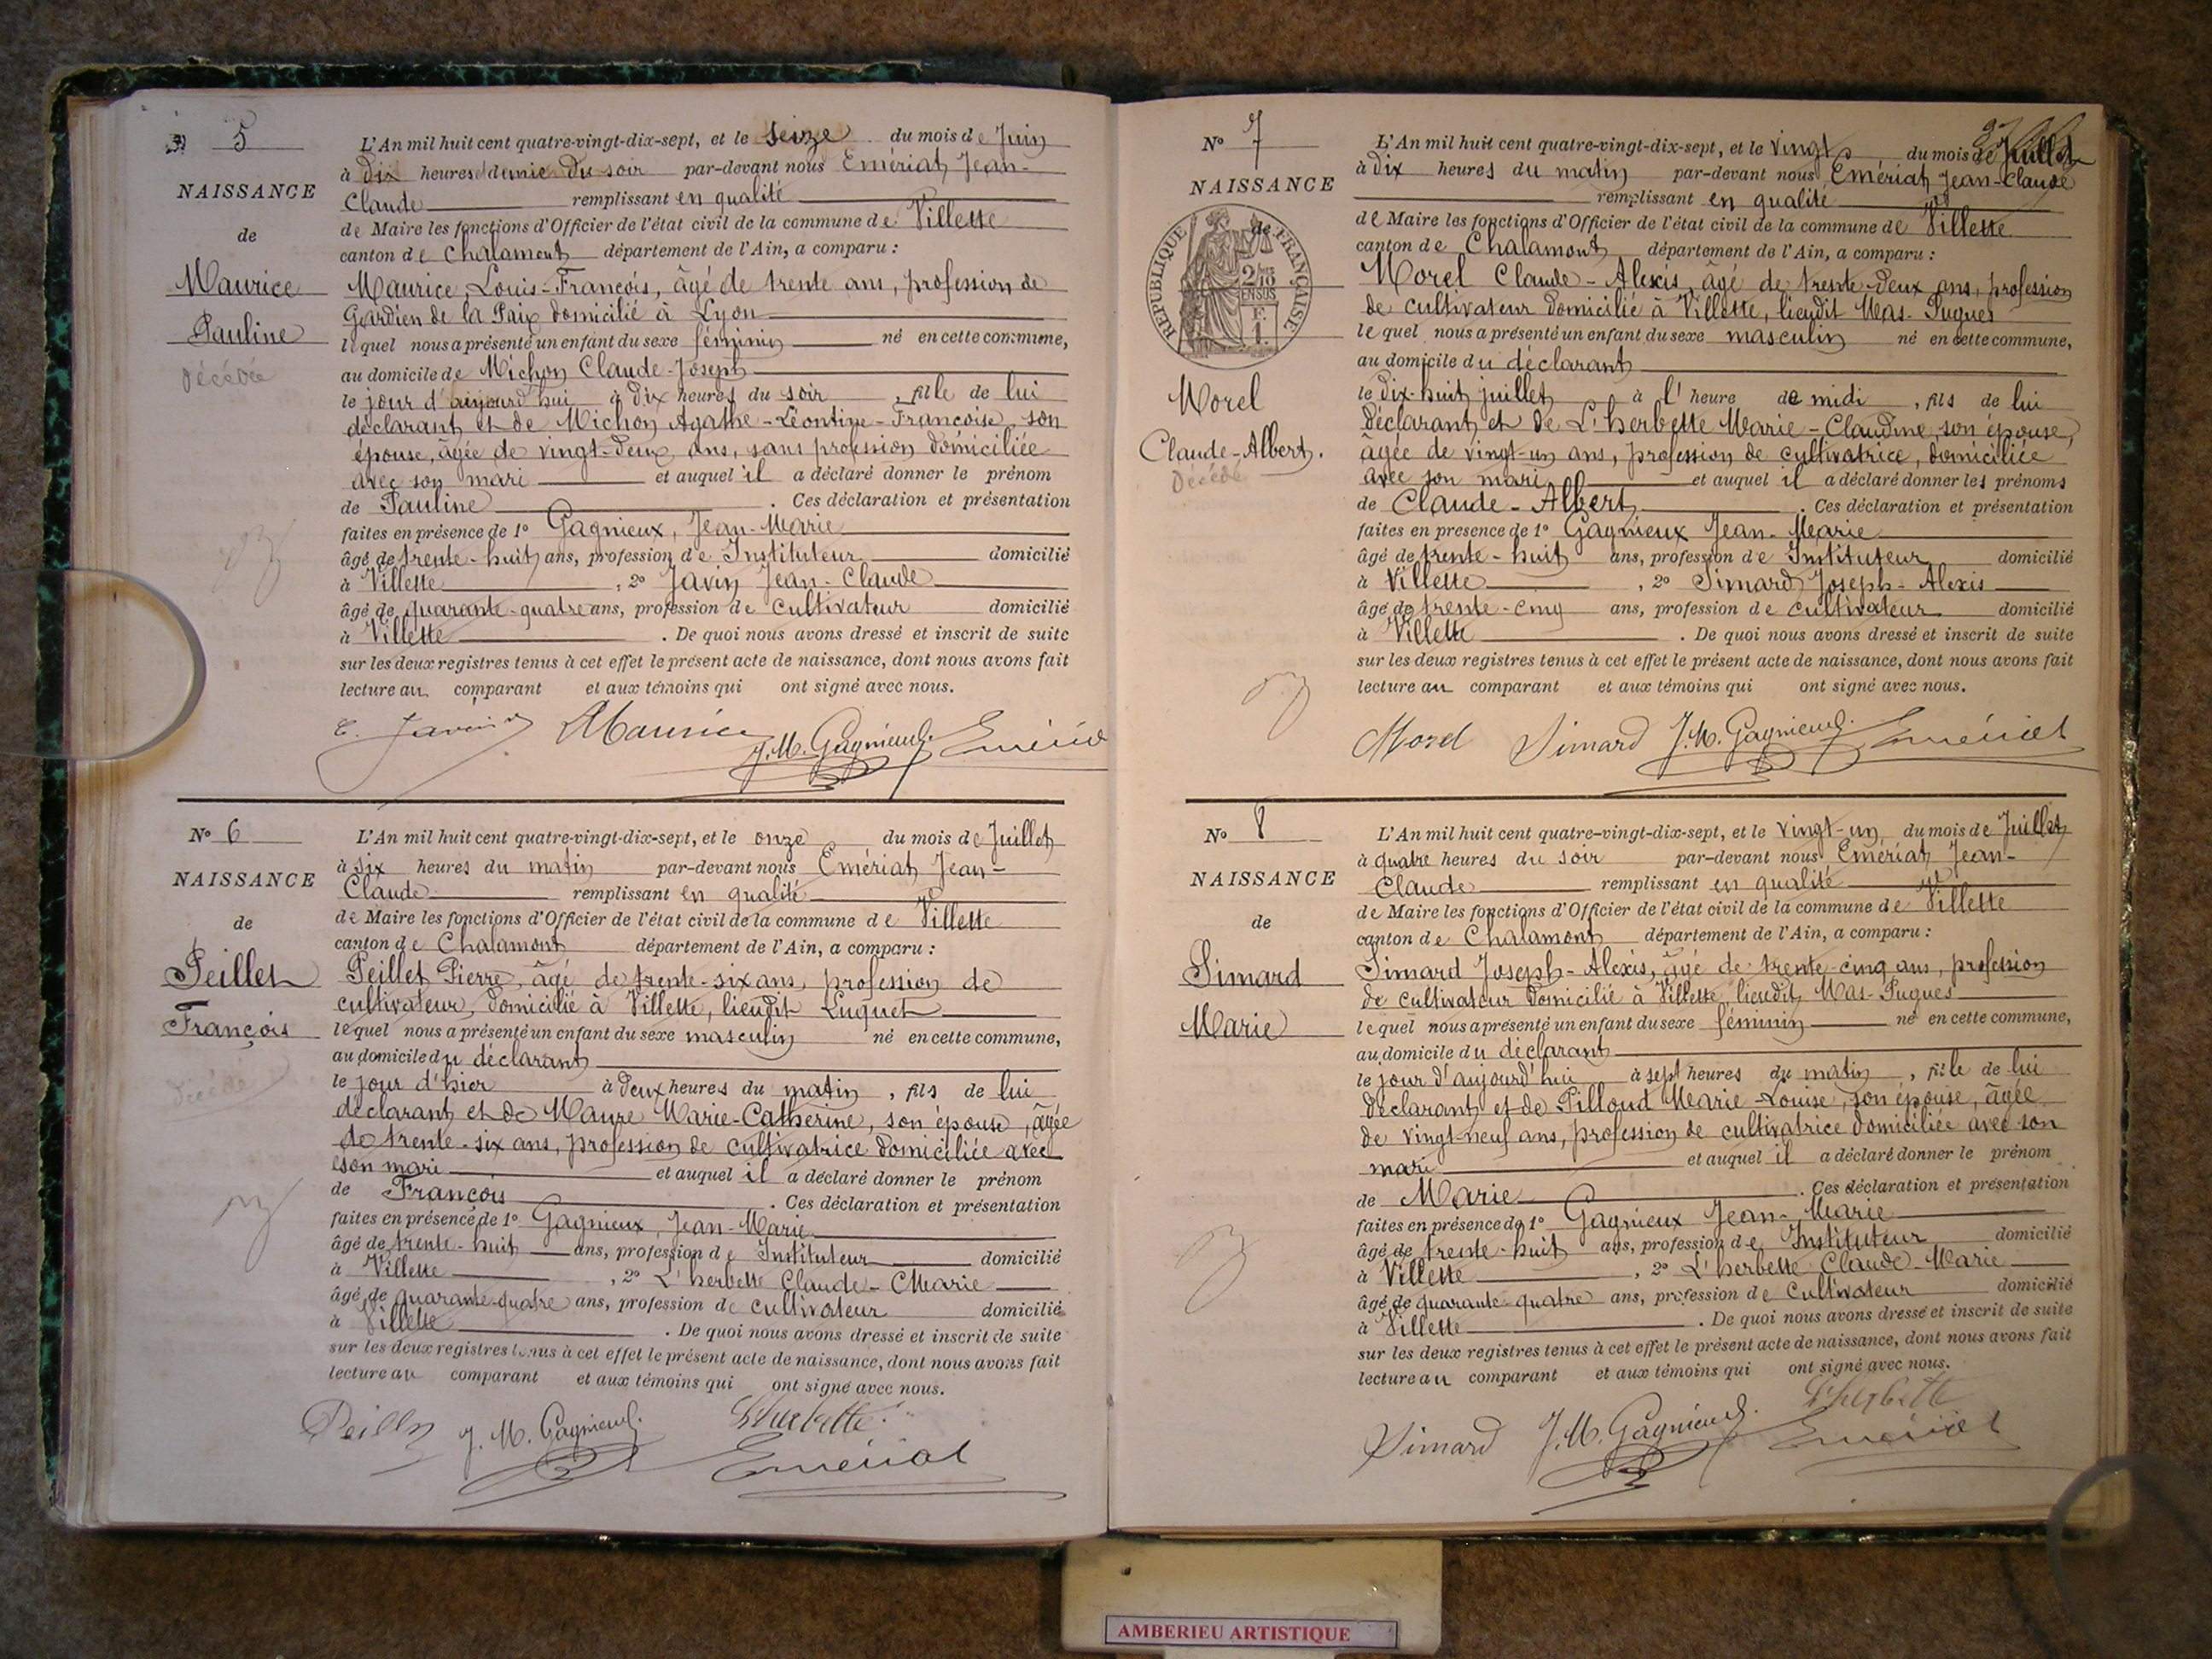 5
NAISSANCE
de
Maurice
Pauline
Décédée
L'An mil huit cent quatre-vingt-dix-sept, et le Seize du mois de Juin
à dix heures demie du soir par-devant nous Emériat Jean-
Claude remplissant en qualité
de Maire les fonctions d'Officier de l'état civil de la commune de Villette
canton de Chalamont département de l'Ain, a comparu :
Maurice, Louis-François, âgé de trente ans, profession de
Gardien de la Paix domicilié à Lyon
lequel nous a présenté un enfant du sexe féminin né en cette commune,
au domicile de Michon Claude-Joseph
le jour d'aujourd'hui à dix heures du soir, fille de lui
déclarant et de Michon Agathe-Léontine-Françoise, son
épouse, âgée de vingt-deux ans, sans profession domiciliée
avec son mari et auquel il a déclaré donner le prénom
de Pauline. Ces déclaration et présentation
faites en présence de 1° Gagnieux, Jean-Marie
âgé de trente-huit ans, profession de Instituteur domicilié
à Villette, 2° Javin Jean-Claude
âgé de quarante-quatre ans, profession de cultivateur domicilié
à Villette. De quoi nous avons dressé et inscrit de suite
sur les deux registres tenus à cet effet le présent acte de naissance, dont nous avons fait
lecture au comparant et aux témoins qui ont signé avec nous.
Maurice J. M. Gagnieux
N° 6
NAISSANCE
de
Peillet
François
Décédé
L'An mil huit cent quatre-vingt-dix-sept, et le onze du mois de Juillet
à six heures du matin par-devant nous Emériat Jean-
Claude remplissant en qualité
de Maire les fonctions d'Officier de l'état civil de la commune de Villette
canton de Chalamont département de l'Ain, a comparu :
Peillet Pierre, âgé de trente-six ans, profession de
cultivateur, domicilié à Villette, lieudit Luquet
lequel nous a présenté un enfant du sexe masculin né en cette commune,
au domicile du déclarant
le jour d'hier à deux heures du matin, fils de lui
déclarant et de Maure Marie-Catherine, son épouse, âgée
de trente-six ans, profession de cultivatrice domiciliée avec
son mari et auquel il a déclaré donner le prénom
de François. Ces déclaration et présentation
faites en présence de 1° Gagnieux, Jean-Marie
âgé de trente-huit ans, profession de Instituteur domicilié
à Villette, 2° L'herbette Claude-Marie
âgé de quarante-quatre ans, profession de cultivateur domicilié
à Villette. De quoi nous avons dressé et inscrit de suite
sur les deux registres tenus à cet effet le présent acte de naissance, dont nous avons fait
lecture au comparant et aux témoins qui ont signé avec nous.
J. M. Gagnieux L'herbette
Emériat
N° 7
NAISSANCE
de
RÉPUBLIQUE FRANÇAISE
Morel
Claude-Albert.
Décédé
L'An mil huit cent quatre-vingt-dix-sept, et le vingt du mois de Juillet
à dix heures du matin par-devant nous Emériat Jean-Claude
remplissant en qualité
de Maire les fonctions d'Officier de l'état civil de la commune de Villette
canton de Chalamont département de l'Ain, a comparu :
Morel Claude-Alexis, âgé de trente-deux ans, profession
de cultivateur domicilié à Villette, lieudit Mas-Pugues
lequel nous a présenté un enfant du sexe masculin né en cette commune,
au domicile du déclarant
le dix-huit juillet à l'heure de midi, fils de lui
déclarant et de L'herbette Marie-Claudine, son épouse,
âgée de vingt-un ans, profession de cultivatrice, domiciliée
avec son mari et auquel il a déclaré donner les prénoms
de Claude-Albert. Ces déclaration et présentation
faites en présence de 1° Gagnieux Jean-Marie
âgé de trente-huit ans, profession de Instituteur domicilié
à Villette, 2° Simard Joseph-Alexis
âgé de trente-cinq ans, profession de cultivateur domicilié
à Villette. De quoi nous avons dressé et inscrit de suite
sur les deux registres tenus à cet effet le présent acte de naissance, dont nous avons fait
lecture au comparant et aux témoins qui ont signé avec nous.
Morel Simard J. M. Gagnieux Emériat
N° 8
NAISSANCE
de
Simard
Marie
L'An mil huit cent quatre-vingt-dix-sept, et le vingt-un du mois de Juillet
à quatre heures du soir par-devant nous Emériat Jean-
Claude remplissant en qualité
de Maire les fonctions d'Officier de l'état civil de la commune de Villette
canton de Chalamont département de l'Ain, a comparu :
Simard Joseph-Alexis, âgé de trente-cinq ans, profession
de cultivateur domicilié à Villette, lieudit Mas-Pugues
lequel nous a présenté un enfant du sexe féminin né en cette commune,
au domicile du déclarant
le jour d'aujourd'hui à sept heures du matin, fille de lui
déclarant et de Pilloud Marie-Louise, son épouse, âgée
de vingt-neuf ans, profession de cultivatrice domiciliée avec son
mari et auquel il a déclaré donner le prénom
de Marie. Ces déclaration et présentation
faites en présence de 1° Gagnieux Jean-Marie
âgé de trente-huit ans, profession de Instituteur domicilié
à Villette, 2° L'herbette Claude-Marie
âgé de quarante-quatre ans, profession de cultivateur domicilié
à Villette. De quoi nous avons dressé et inscrit de suite
sur les deux registres tenus à cet effet le présent acte de naissance, dont nous avons fait
lecture au comparant et aux témoins qui ont signé avec nous.
L'herbette
Simard J. M. Gagnieux Emériat
AMBERIEU ARTISTIQUE